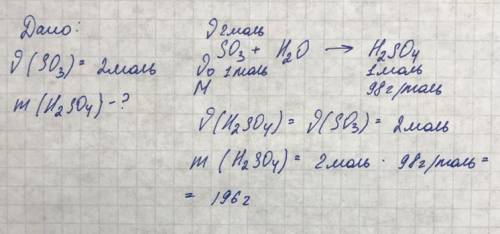 Дано:
ν(SO₃) = 2моль
m(H₂SO₄) - ?
ν 2моль
SO₃ + H₂O → H₂SO₄
ν₀ 1моль 1моль
M 98г/моль
ν(H₂SO₄) = ν(SO₃) = 2моль
m(H₂SO₄) = 2моль · 98г/моль =
= 196г